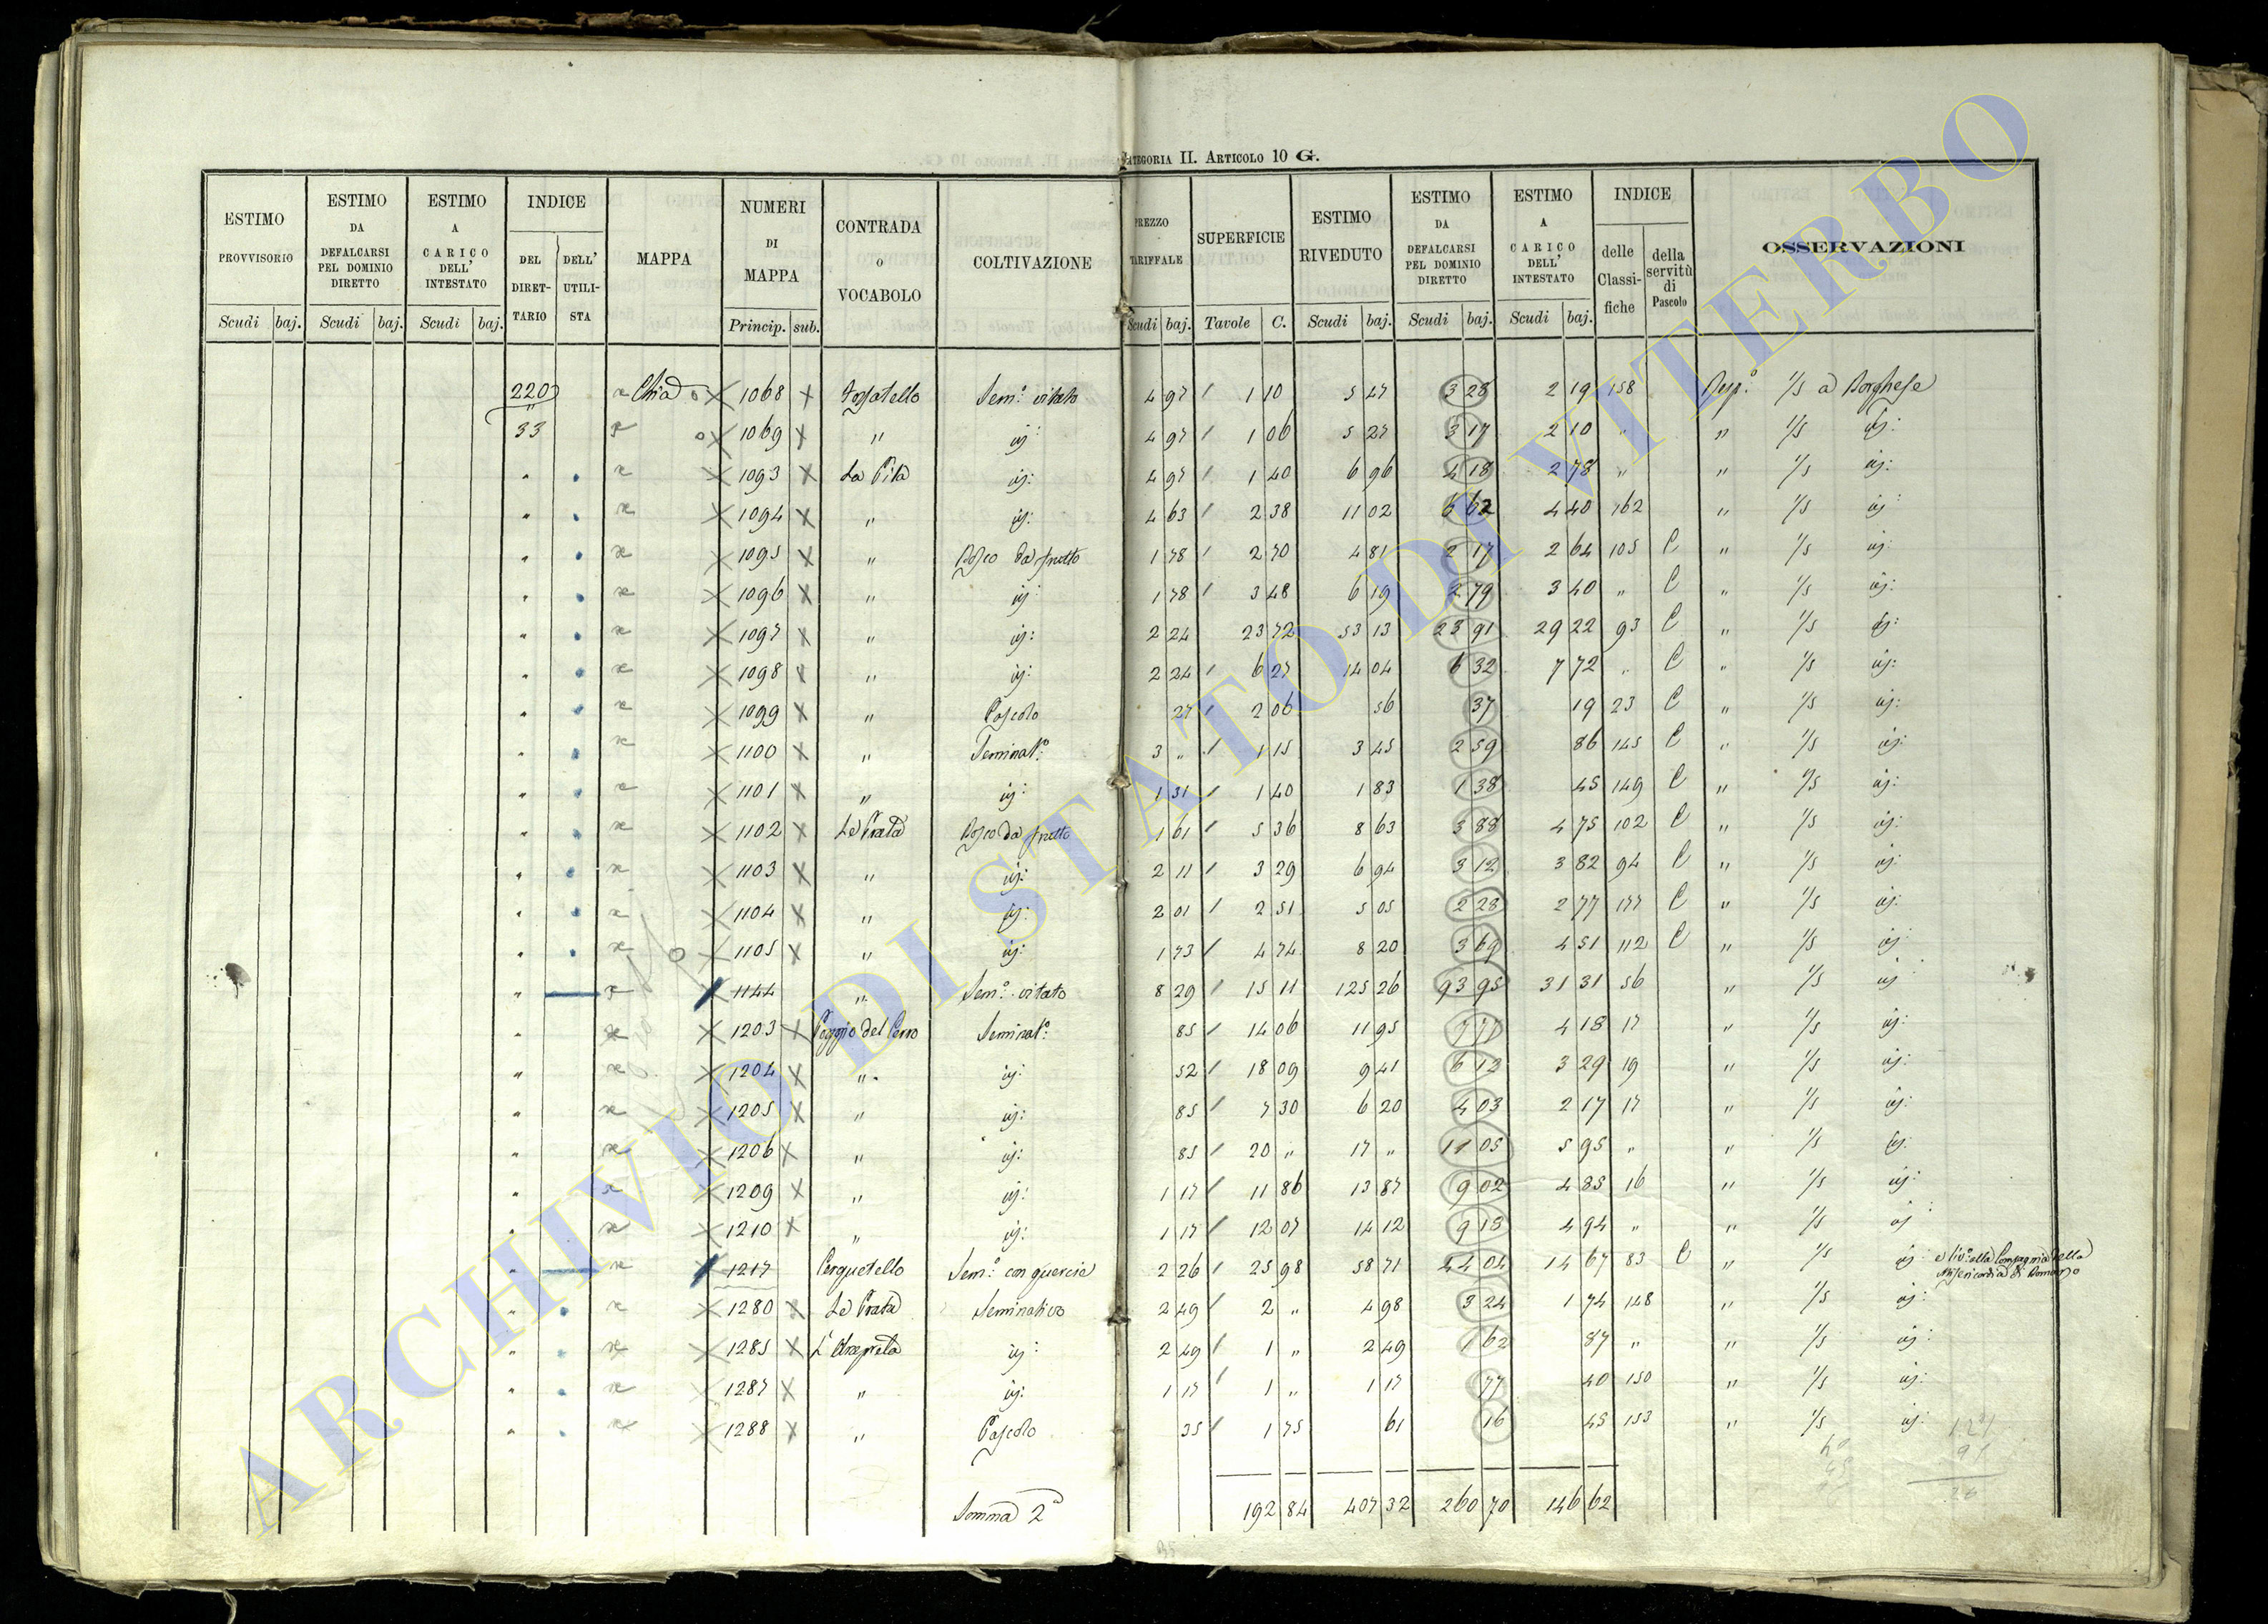 CATEGORIA II. ARTICOLO 10 G.
ESTIMO PROVVISORIO | ESTIMO DA DEFALCARSI PEL DOMINIO DIRETTO | ESTIMO A CARICO DELL' INTESTATO | INDICE DEL DIRETTARIO | DELL' UTILISTA | MAPPA | NUMERI DI MAPPA | CONTRADA O VOCABOLO | COLTIVAZIONE | PREZZO TARIFFALE | SUPERFICIE | ESTIMO RIVEDUTO | ESTIMO DA DEFALCARSI PEL DOMINIO DIRETTO | ESTIMO A CARICO DELL' INTESTATO | INDICE delle Classifiche | della servitù di Pascolo | OSSERVAZIONI
Scudi | baj. | Scudi | baj. | Scudi | baj. | Princip. | sub. | Scudi | baj. | Tavole | C. | Scudi | baj. | Scudi | baj. | Scudi | baj.
220 Chia 1068 Fossatello Sem.o vitato 4 97 1 10 5 47 3 28 2 19 158 Risp. 1/5 a Borghese
33 1069 " id: 4 97 1 06 5 27 3 17 2 10 " " 1/5 id:
" 1093 La Pila id: 4 97 1 40 6 96 4 18 2 78 " " 1/5 id:
" 1094 " id: 4 63 2 38 11 02 6 62 4 40 162 " 1/5 id:
" 1095 " Bosco da frutto 1 78 2 70 4 81 2 17 2 64 105 C " 1/5 id:
" 1096 " id: 1 78 3 48 6 19 2 79 3 40 " C " 1/5 id:
" 1097 " id: 2 24 23 72 53 13 23 91 29 22 93 C " 1/5 id:
" 1098 " id: 2 24 6 27 14 04 6 32 7 72 " C " 1/5 id:
" 1099 " Pascolo 27 2 06 56 37 19 23 C " 1/5 id:
" 1100 " Seminat.o 3 " 1 15 3 45 2 59 86 145 C " 1/5 id:
" 1101 " id: 1 31 1 40 1 83 1 38 45 149 C " 1/5 id:
" 1102 Le Prata Bosco da frutto 1 61 5 36 8 63 3 88 4 75 102 C " 1/5 id:
" 1103 " id: 2 11 3 29 6 94 3 12 3 82 94 C " 1/5 id:
" 1104 " id: 2 01 2 51 5 05 2 28 2 77 177 C " 1/5 id:
" 1105 " id: 1 73 4 74 8 20 3 69 4 51 112 C " 1/5 id:
" 1144 " Sem.o vitato 8 29 15 11 125 26 93 95 31 31 56 " 1/5 id:
" 1203 Poggio del Cerro Seminat.o 85 14 06 11 95 7 77 4 18 17 " 1/5 id:
" 1204 " id: 52 18 09 9 41 6 12 3 29 19 " 1/5 id:
" 1205 " id: 85 7 30 6 20 4 03 2 17 17 " 1/5 id:
" 1206 " id: 85 20 " 17 " 11 05 5 95 " " 1/5 id:
" 1209 " id: 1 17 11 86 13 87 9 02 4 85 16 " 1/5 id:
" 1210 " id: 1 17 12 07 14 12 9 18 4 94 " " 1/5 id:
" 1217 Cerquetello Sem.o con quercie 2 26 25 98 58 71 44 04 14 67 83 C " 1/5 id: e liv.o alla Compagnia della
Misericordia di Bomarzo
" 1280 Le Prata Seminativo 2 49 2 " 4 98 3 24 1 74 148 " 1/5 id:
" 1285 id: 2 49 1 " 2 49 1 62 87 " " 1/5 id:
" 1287 " id: 1 17 1 " 1 17 77 40 150 " 1/5 id:
" 1288 " Pascolo 35 1 75 61 16 45 153 " 1/5 id:
Somma 2a 192 84 407 32 260 70 146 62
ARCHIVIO DI STATO DI VITERBO